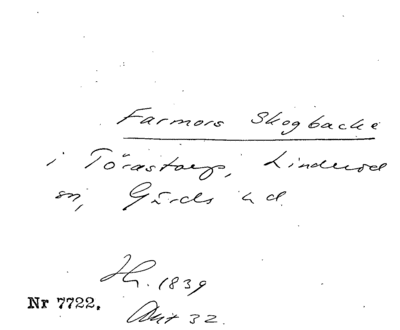 Farmors Skogbacke
i Törastorp, Linderöd
sn, Gärds hd.
Hr. 1839
Nr 7722.
Akt 32.